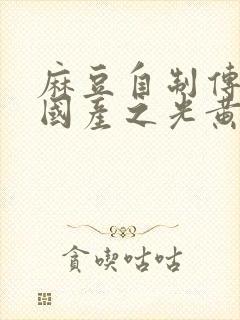 麻豆自制傳
國產之光黃
貪喫咕咕